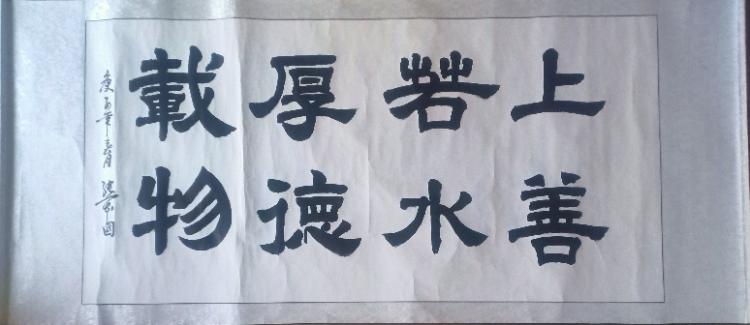 上善
若水
厚德
載物
庚子年春月